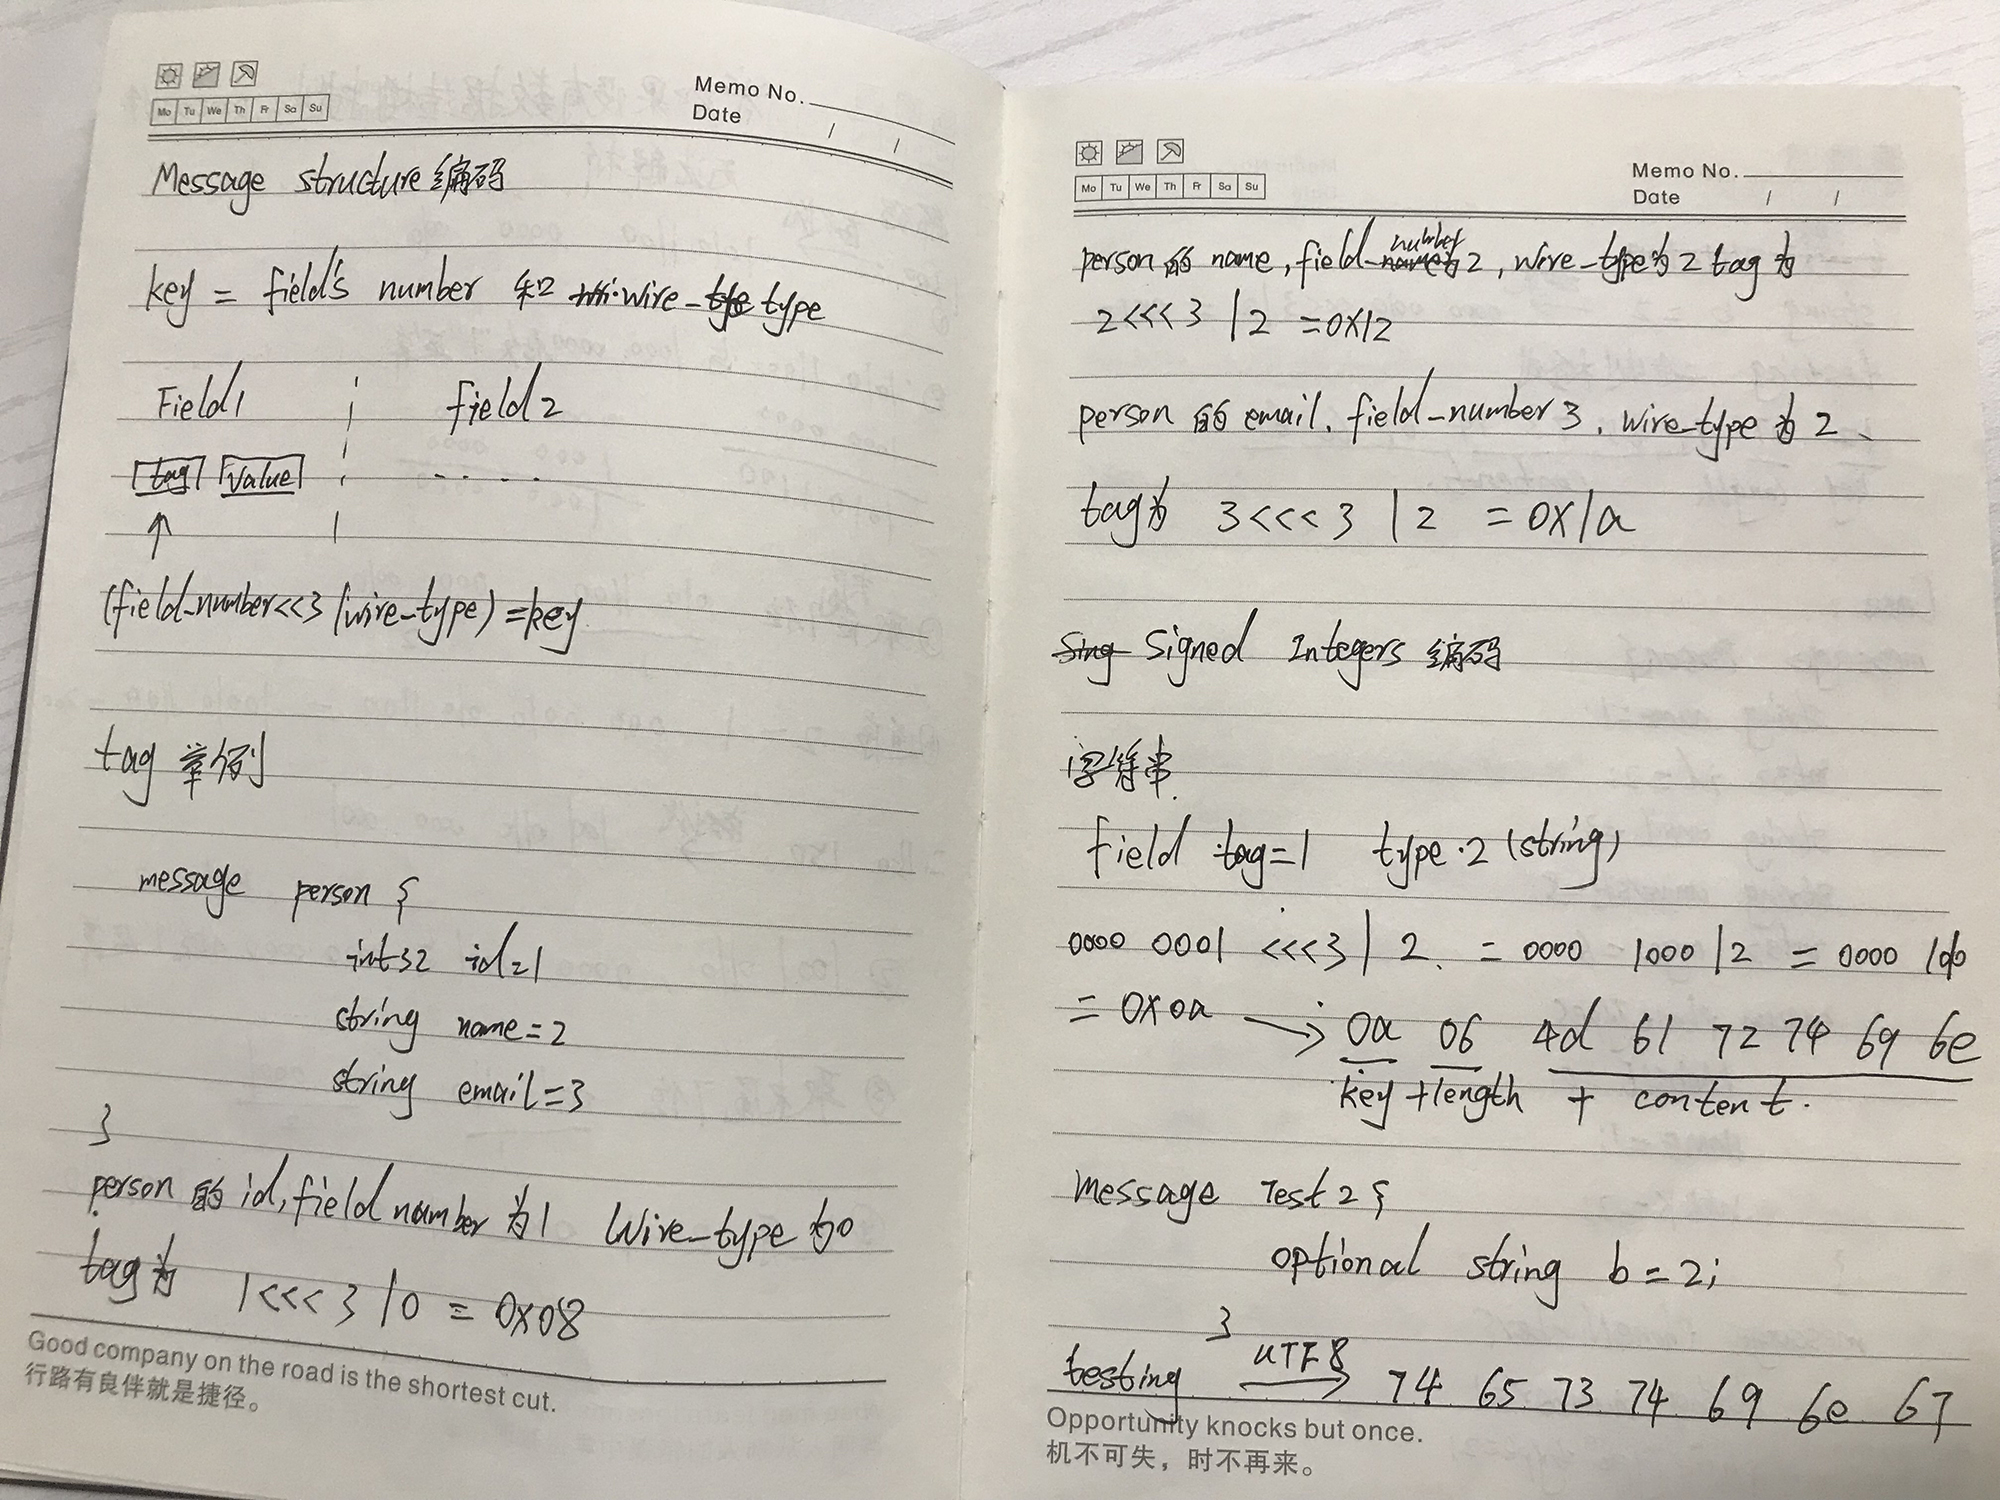 Mo Tu We Th Fr Sa Su
Memo No.
Date / /
Message structure 编码
key = field's number 和 wire_type
Field1 field2
tag value ....
(field_number<<3 | wire_type) = key
tag 举例
message person {
int32 id=1
string name=2
string email=3
}
person 的 id, field number 为1 Wire_type 为0
tag为 1<<<3 | 0 = 0x08
Good company on the road is the shortest cut.
行路有良伴就是捷径。
Mo Tu We Th Fr Sa Su
Memo No.
Date / /
person 的 name, field_number 2, wire_type为2 tag为
2<<<3 | 2 = 0X12
person 的 email. field_number 3. wire_type 为 2、
tag为 3<<<3 | 2 = 0X1a
Sing Signed Integers 编码
字符串.
field tag=1 type·2 (string)
0000 0001 <<<3 | 2. = 0000 1000 | 2 = 0000 1010
= 0x0a → 0a 06 4d 61 72 74 69 6e
key + length + content.
message Test2 {
optional string b = 2;
}
testing UTF8 → 74 65 73 74 69 6e 67
Opportunity knocks but once.
机不可失，时不再来。